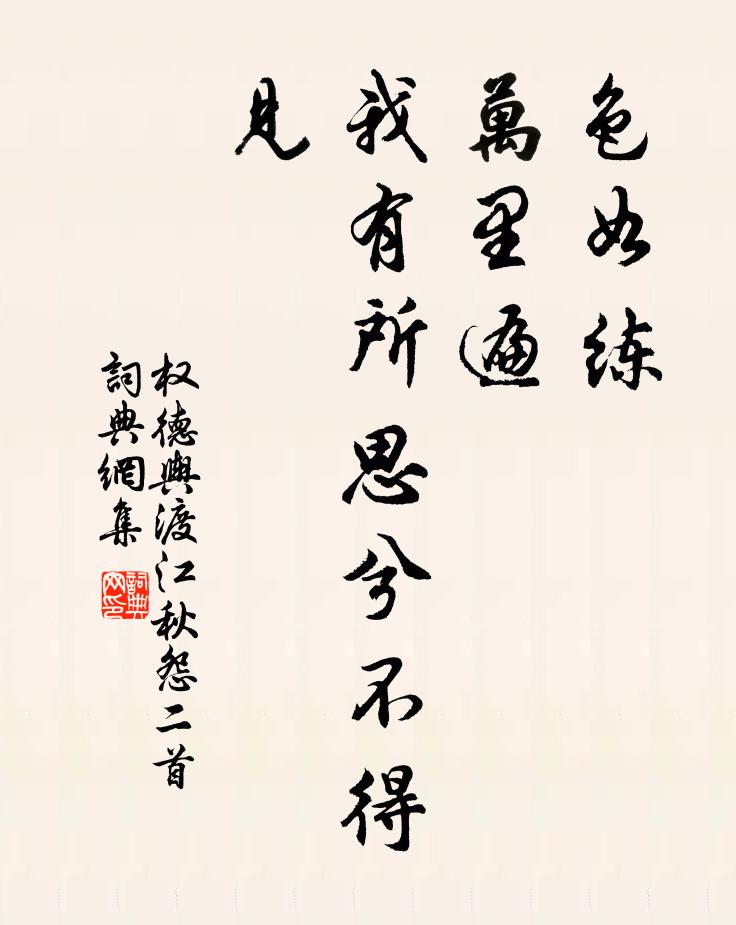 色如练
萬里遍
我有所思兮不得
见
权德輿渡江秋怨二首
詞典網集
詞典网印